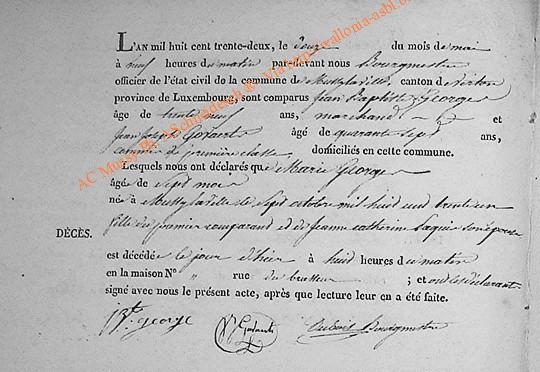 L'AN mil huit cent trente-deux, le douze du mois de mai
à neuf heures du matin par-devant nous Bourgmestre
officier de l'état civil de la commune de Mussylaville, canton de Virton
province de Luxembourg, sont comparus Jean Baptiste George
âgé de trente neuf ans, marchand et
Jean Joseph âgé de quarante sept ans,
commis de première classe, domiciliés en cette commune.
Lesquels nous ont déclarés que Marie George
âgée de sept mois
née à Mussylaville le Sept octobre mil huit cent trente un
fille du premier comparant et de Jeanne catherine son épouse
DÉCÈS.
est décédée le jour d'hier à huit heures du matin
en la maison N° " rue du ; et ont les déclarants
signé avec nous le présent acte, après que lecture leur en a été faite.
george
Bourgmestre
AC Mussy